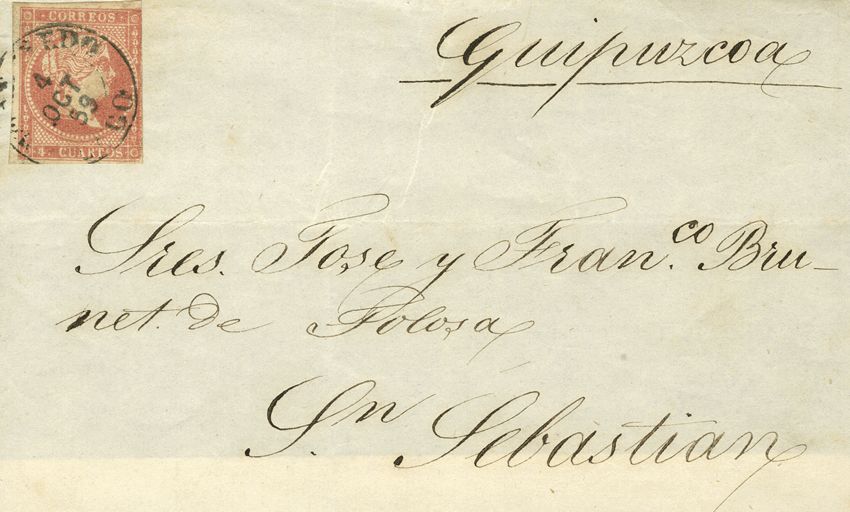 CORREOS
4 OCT 59
4 CUARTOS
Guipuzcoa
Sres. Jose y Fran.co Bru-
net. de Tolosa
Sn. Sebastian